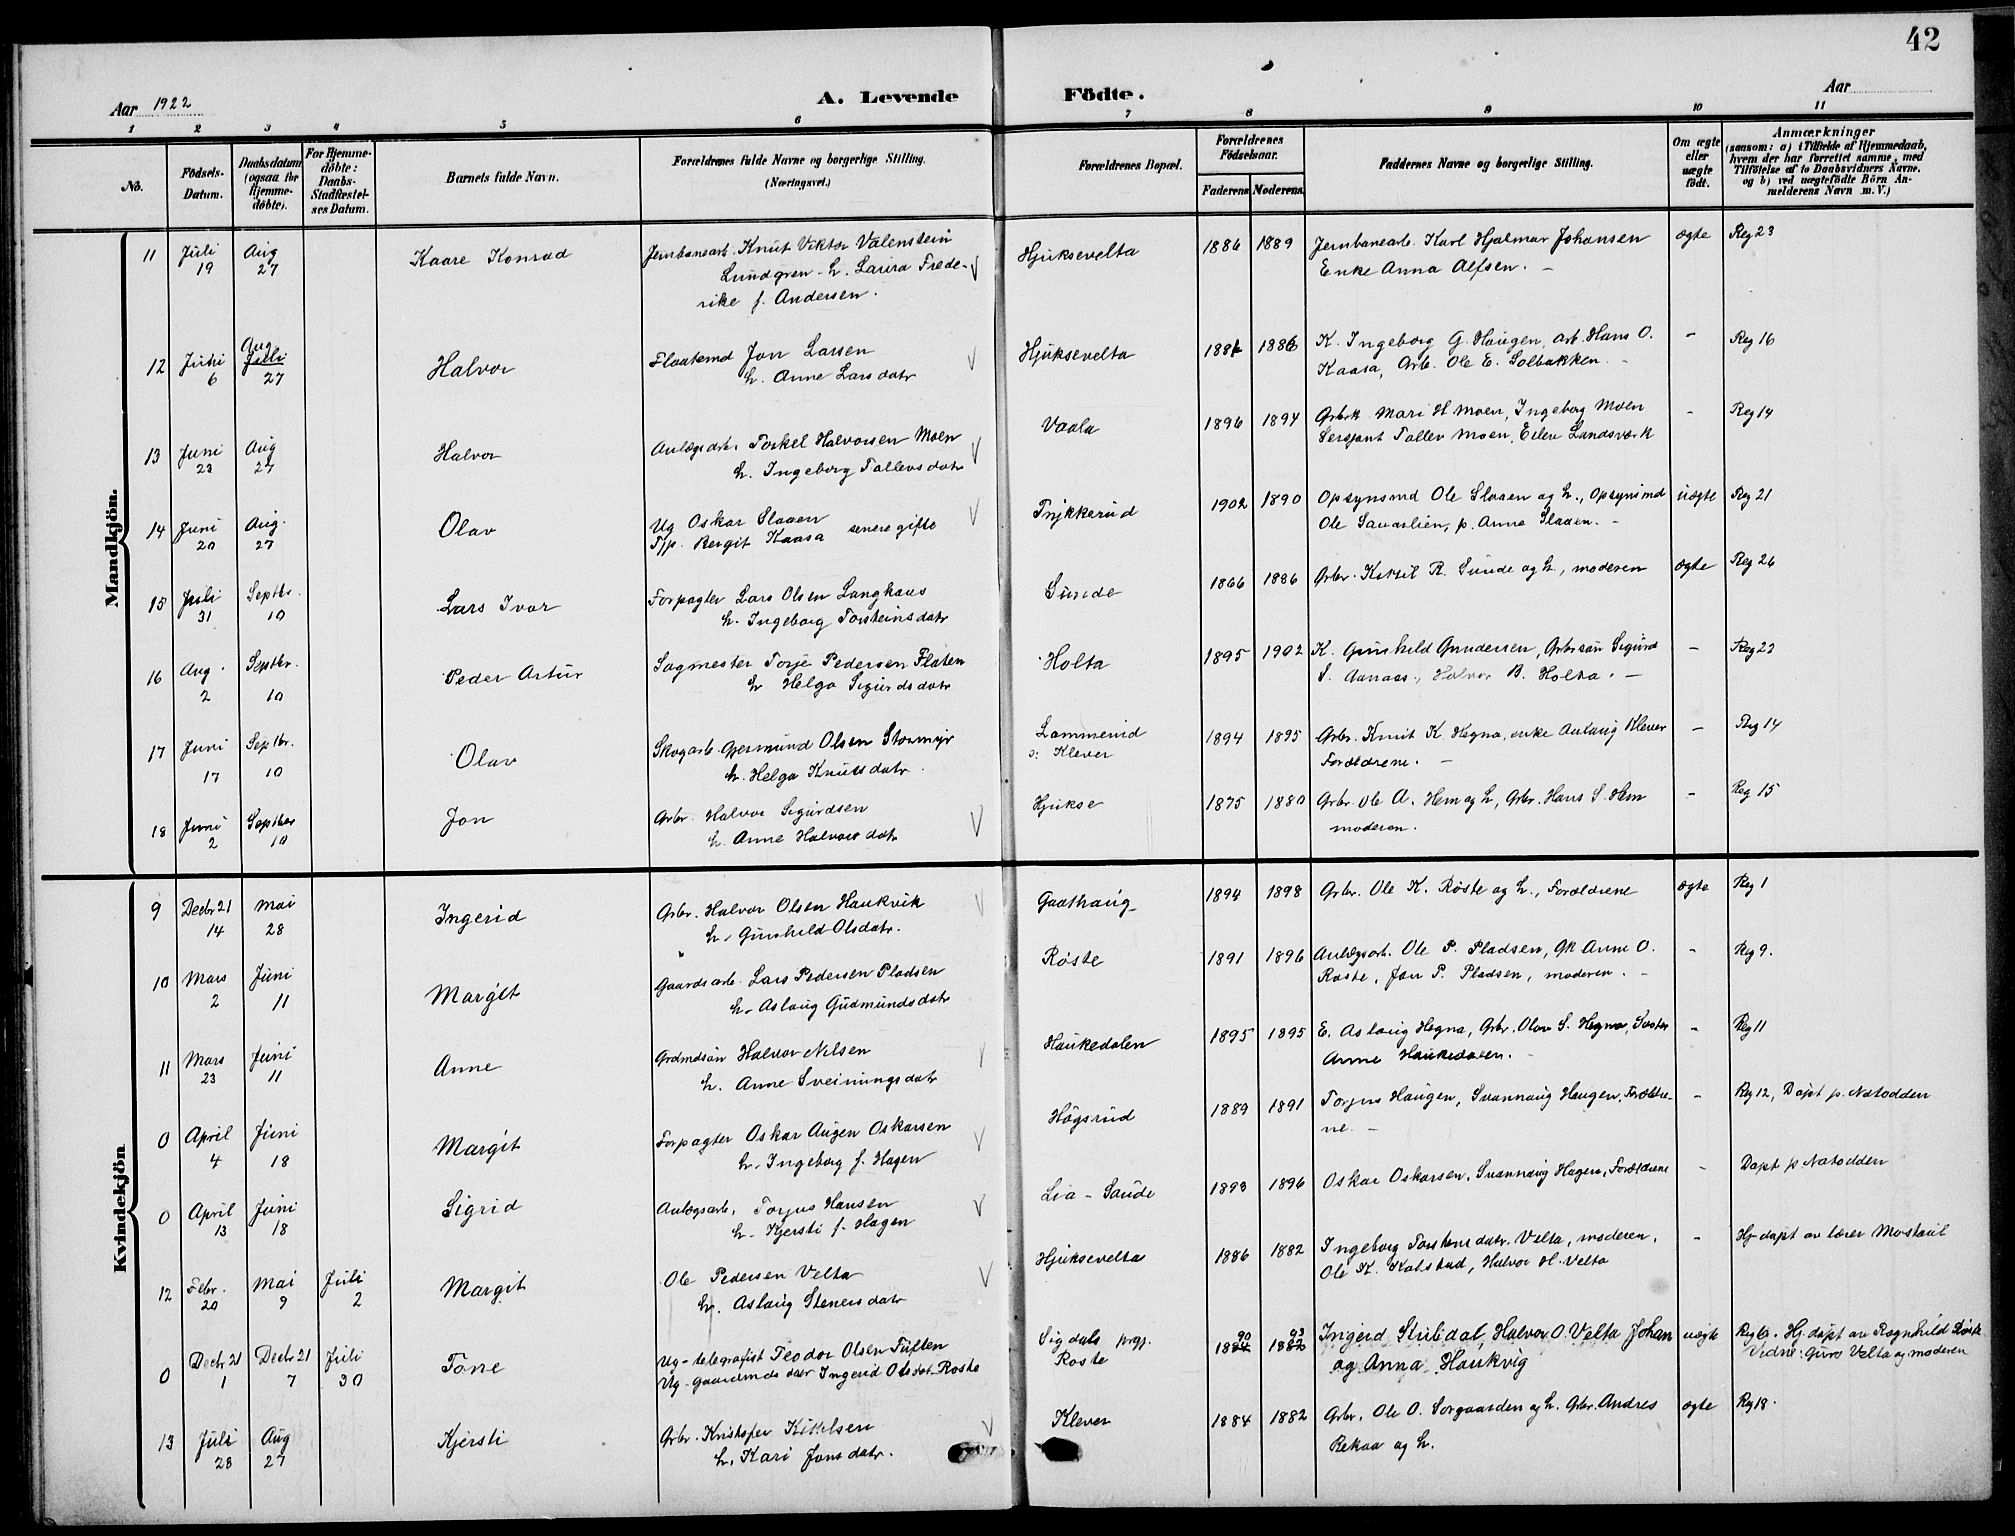 42
Aar 1922
A. Levende Födte.
Aar
1 2 3 4 5 6 7 8 9 10 11
No.
Födsels-Datum.
Daabsdatum (ogsaa for Hjemme-döbte).
For Hjemme-döbte: Daabs-Stadfæstel-ses Datum.
Barnets fulde Navn.
Forældrenes fulde Navne og borgerlige Stilling. (Næringsvei.)
Forældrenes Bopæl.
Forældrenes Födselsaar.
Faderens Moderens.
Faddernes Navne og borgerlige Stilling.
Om ægte eller uægte födt.
Anmærkninger
(saasom: a) i Tilfælde af Hjemmedaab,
hvem der har forrettet samme, med
Tilföielse af to Daabsvidners Navne.
og b) ved uægtefödte Börn An-
melderens Navn m. V.)
Mandkjön.
11 Juli 19 Aug 27 Kaare Konrad Jernbanearb. Knut Viktor Valenstein Hjuksevelta 1886 1889 Jernbanearb. Karl Hjalmar Johansen ægte Reg 23
Lundgren - h. Laura Frede- Enke Anna Alfsen. -
rike f. Andersen.
12 Juni 6 Aug Juli 27 Halvor Fløtemd Jon Larsen Hjuksevelta 1881 1886 K. Ingeborg G. Haugen, arb. Hans O. - Reg 16
h. Anne Larsdatr Kaasa, Arb. Ole E. Solbakken. -
13 Juni 23 Aug 27 Halvor Anlægsarb. Torkel Halvorsen Moen Vaala 1896 1894 Grbrk. Mari H Moen, Ingeborg Moen - Reg 14
h. Ingeborg Tallevsdatr Sersjant Tallev Moen, Eilev Landsverk
14 Juni 20 Aug. 27 Olav Ug Oskar Slaaen Trykkerud 1902 1890 Opsynsmd Ole Slaaen og h., Opsynsmd uægte Reg 21
Tjp. Bergit Kaasa senere gifte Ole Sauarlien, p. Anne Slaaen. -
15 Juli 31 Septbr. 10 Lars Ivar Forpagter Lars Olsen Langkaas Sunde 1866 1886 Grbr. Kittil R. Sunde og h., moderen ægte Reg 26
h. Ingeborg Torsteinsdatr
16 Aug. 2 Septbr. 10 Peder Artur Sagmester Torje Pedersen Flaten Holta 1895 1902 K. Gunhild Gundersen, Grbrsøn Sigurd - Reg 22
h Helga Sigurdsdatr S. Aanaas, Halvor B. Holta. -
17 Juni 17 Septbr. 10 Olav Skogarb. Gjermund Olsen Stormyr Lammerud 1894 1895 Grbr. Knut K. Hegna, enke Aslaug Klever - Reg 14
h. Helga Knutsdatr. o: Klever Forældrene. -
18 Juni 2 Septbr 10 Jon Grbr. Halvor Sigurdsen Hjukse 1875 1880 Grbr. Ole A. Hem og h, Grbr. Hans S. Hem - Reg 15
h. Anne Halvorsdatr moderen.
Kvindekjön
9 Decbr 21 14 Mai 28 Ingerid Grbr. Halvor Olsen Haukvik Gaathaug 1894 1898 Grbr. Ole K. Røste og h., Forældrene ægte Reg 1
h. Gunhild Olsdatr.
10 Mars 2 Juni 11 Margit Gaardsarb. Lars Pedersen Pladsen Røste 1891 1896 Anlægsarb. Ole P. Pladsen, Gk Anne O. - Reg 9.
h. Aslaug Gudmundsdatr Røste, Jon P. Pladsen, moderen. -
11 Mars 23 Juni 11 Anne Grdmdsøn Halvor Nilsen Haukedalen 1895 1895 E. Aslaug Hegna, Grbr. Olav S. Hegna, Søster - Reg 11
h. Anne Sveinungsdatr Anne Haukedalen. -
0 April 4 Juni 18 Margit Forpagter Oskar Augen Oskarsen Høgsrud 1889 1891 Torjus Haugen, Svannaug Haugen, Forældre- - Reg 12, Døpt p. Notodden
h. Ingeborg f. Hagen ne. -
0 April 13 Juni 18 Sigrid Anlægsarb. Torjus Hansen Lia - Saude 1893 1896 Oskar Oskarsen, Svannaug Hagen, Forældrene - Døpt p Notodden
h. Kjersti f. Hagen
12 Febr. 20 Mai 9 Juli 2 Margit Ole Pedersen Velta Hjuksevelta 1886 1882 Ingeborg Torstensdatr. Velta, moderen, - Hj døpt av lærer Mostaul
h. Aslaug Stenersdatr Ole K. Kolstad, Halvor H. Velta
0 Decbr 21 1 Decbr 21 7 Juli 30 Tone Ug - telegrafist Teodor Olsen Tuften Sigdals prgj. 1884 90 1882 93 Ingerid Stulidal, Halvor O. Velta Johan uægte Reg 6. Hj. døpt av Ragnhild Røste
Ug - gaardmds datr Ingerid Olsdatr Røste Røste og Anna Haukvig Vidne: Guro Velta og moderen
13 Juli 28 Aug 27 Kjersti Grbr. Kristofer Kittilsen Klever 1884 1882 Grbr. Ole O. Sorgaarden og h. Grbr. Andres ægte Reg 18.
h. Kari Jonsdatr. Rekaa og h.